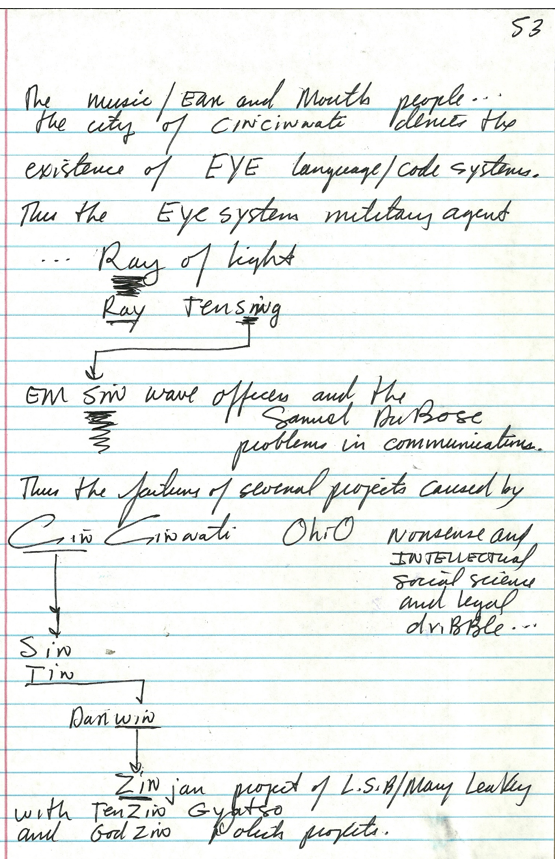 53
The music/Ear and Mouth people...
the city of Cincinnati denies the
existence of EYE language/code systems.
Thus the Eye system military agent
... Ray of light
Ray Tensing
EM Sin wave officers and the
Samuel DuBose
problems in communications.
Thus the failures of several projects caused by
Cin Cinnati OhiO Nonsense and
INTELLECTUAL
social science
and legal
driBBle...
Sin
Tin
Darwin
Zinjan project of L.S.B/Mary Leakey
with TenZin Gyatso
and God Zin Polish projects.